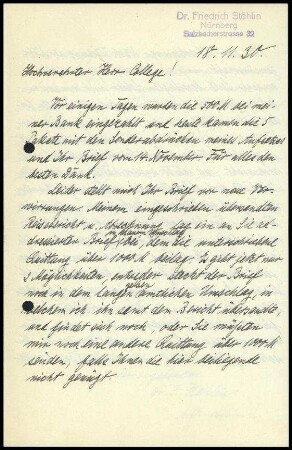 Dr. Friedrich Stählin
Nürnberg
Sulzbacherstrasse 32
18.11.30.
Hochverehrter Herr College!
Vor einigen Tagen wurden die 500 M. bei mei-
ner Bank eingezahlt und heute kamen die 5
Pakete mit den Sonderabdrücken meines Aufsatzes
und Ihr Brief vom 14. November. Für alles den
besten Dank.
Leider stellt mich Ihr Brief vor neue Ver-
wirrungen. Meinem eingeschrieben übersandten
Reisebericht u. Abrechnung lag ein an Sie ad-
in blauem Umschlag
ressierter Brief bei, dem die unterzeichnete
Quittung über 1000 M. beilag. Es gibt jetzt nur
2 Möglichkeiten, entweder steckt der Brief
noch in dem langen gelben amtlichen Umschlag, in
welchem ich ihn samt dem Bericht übersandte
und findet sich noch, oder Sie müßten
mir noch eine andere Quittung über 1000 M
senden, falls Ihnen die hier beiliegende
nicht genügt.